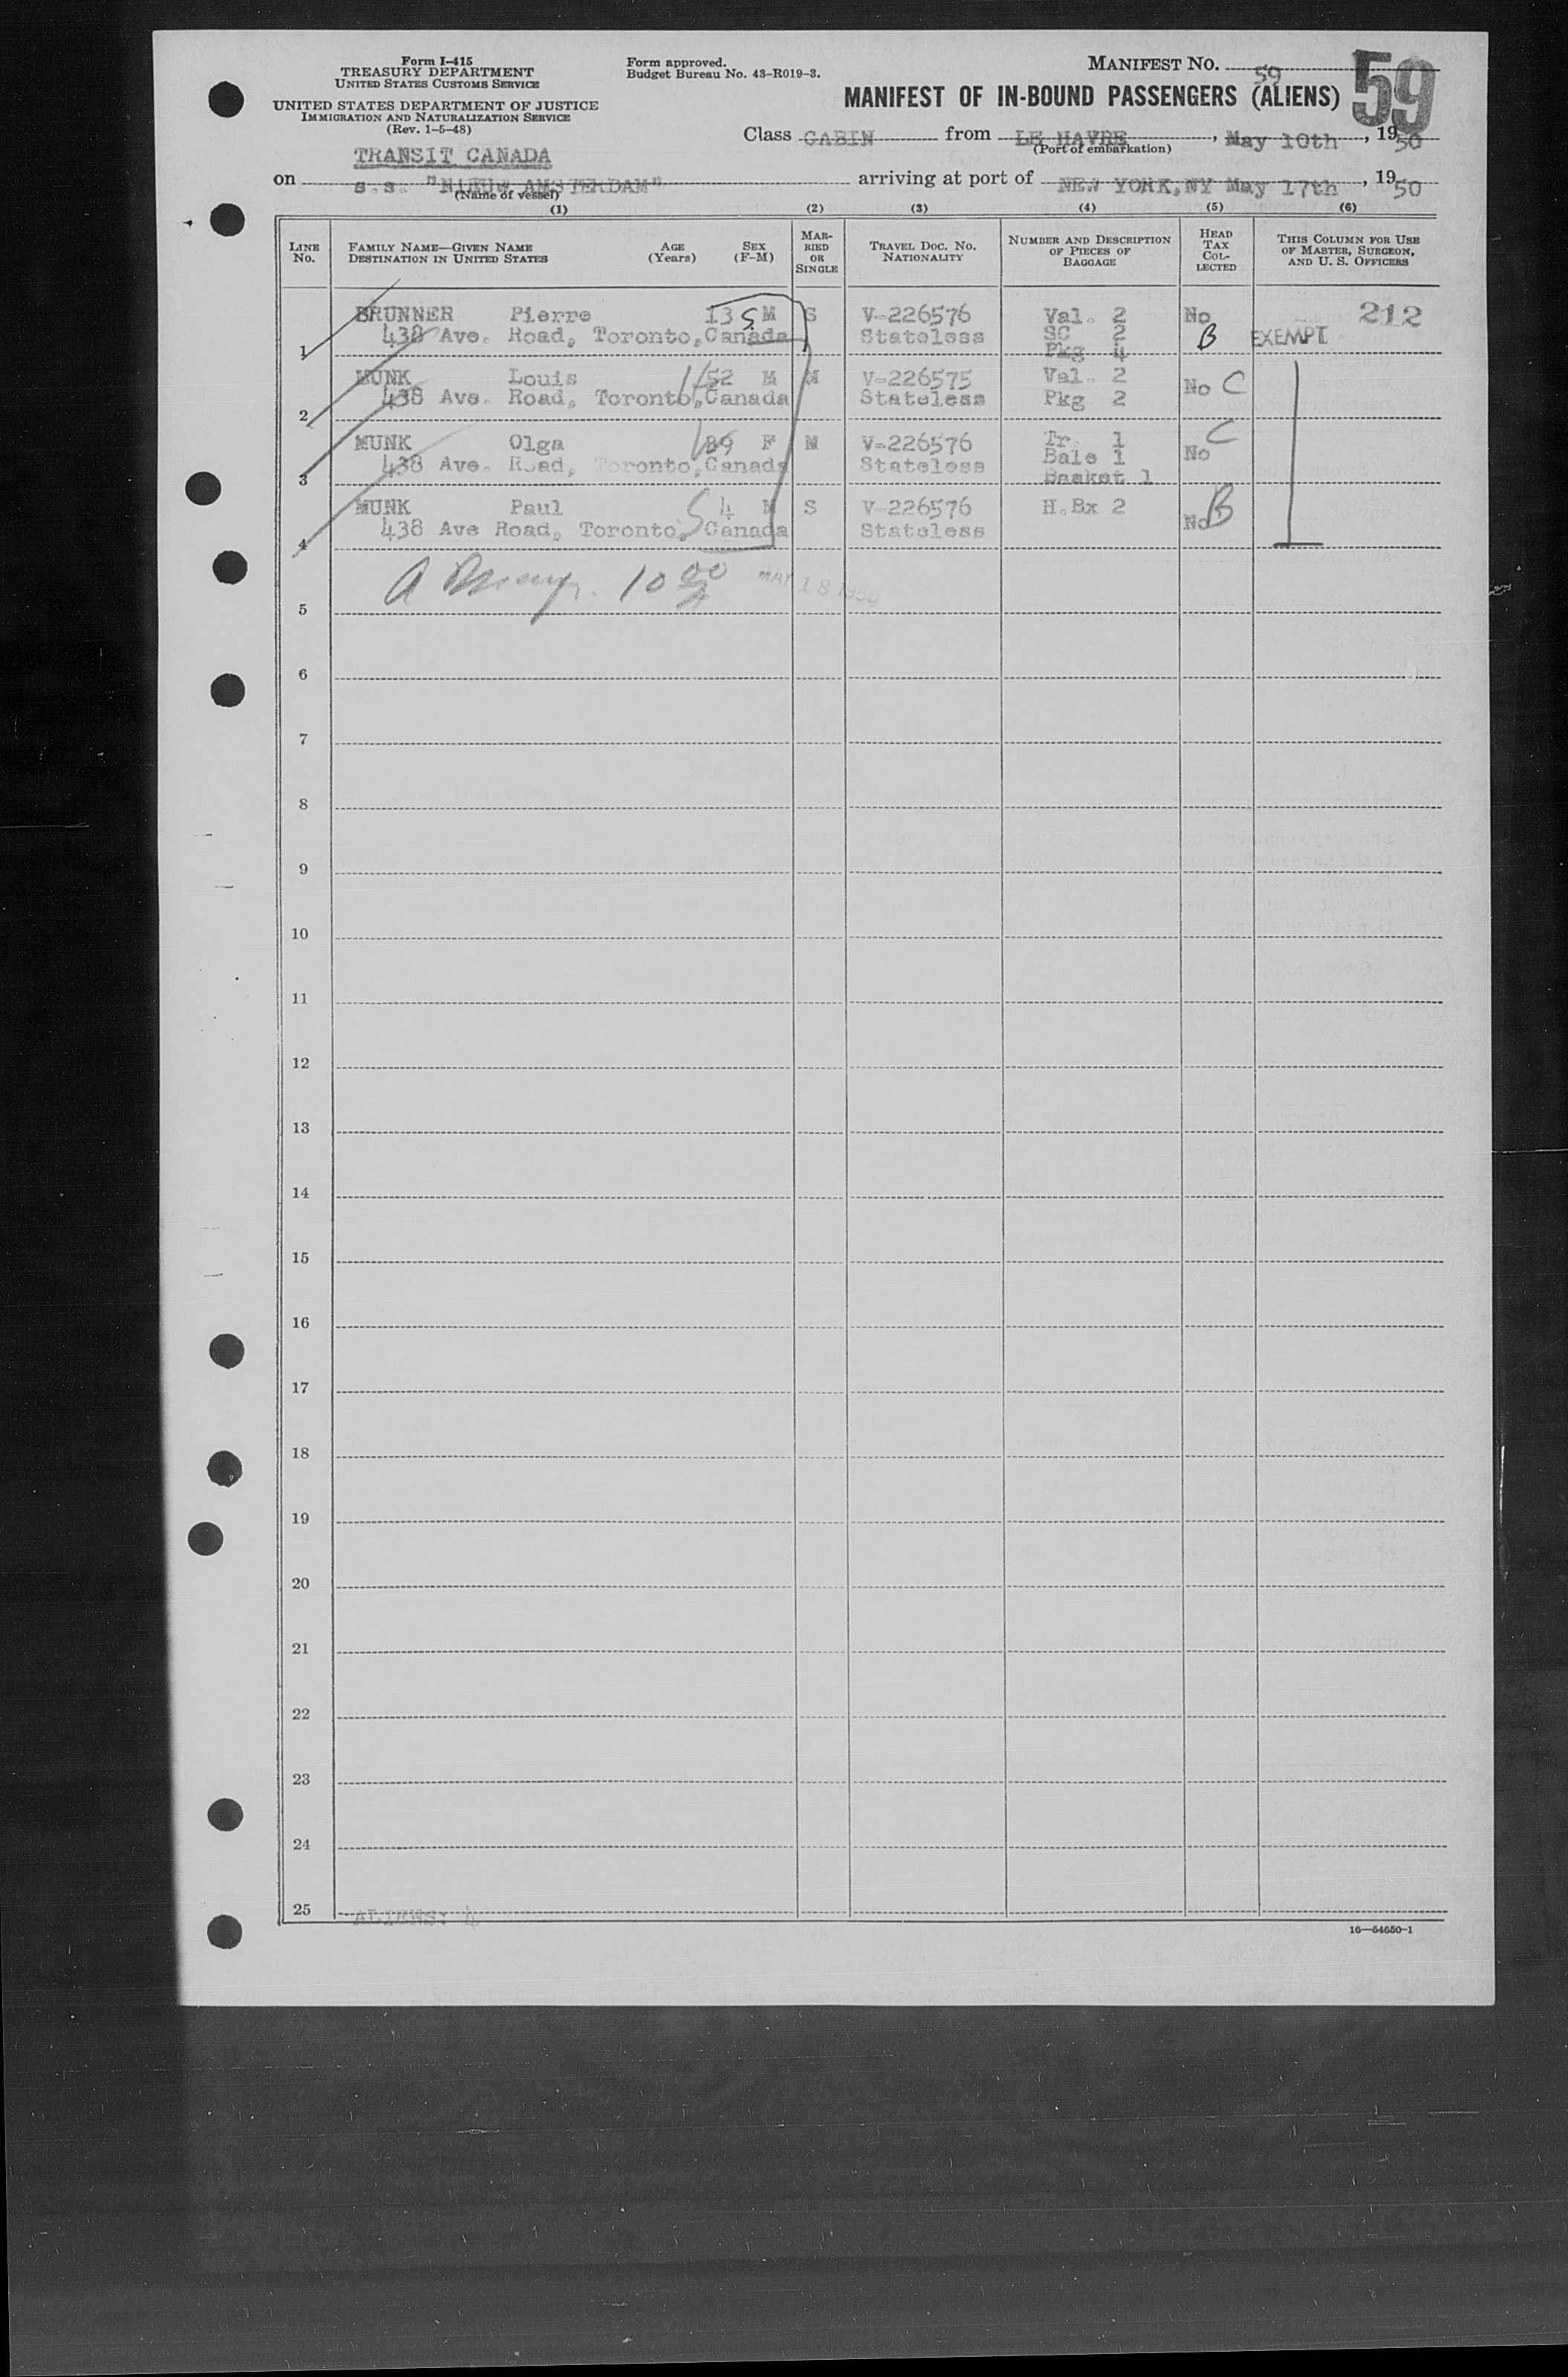 Form I-415
TREASURY DEPARTMENT
UNITED STATES CUSTOMS SERVICE
UNITED STATES DEPARTMENT OF JUSTICE
IMMIGRATION AND NATURALIZATION SERVICE
(Rev. 1-5-48)
Form approved.
Budget Bureau No. 43-R019-3.
MANIFEST NO. 59
59
MANIFEST OF IN-BOUND PASSENGERS (ALIENS)
Class CABIN from LE HAVRE, May 10th, 1950
(Port of embarkation)
TRANSIT CANADA
on s.s. "NIEUW AMSTERDAM" arriving at port of NEW YORK,NY May 17th, 1950
(Name of vessel)
(1) (2) (3) (4) (5) (6)
LINE No. FAMILY NAME—GIVEN NAME DESTINATION IN UNITED STATES AGE (Years) SEX (F-M) MARRIED OR SINGLE TRAVEL DOC. NO. NATIONALITY NUMBER AND DESCRIPTION OF PIECES OF BAGGAGE HEAD TAX COLLECTED THIS COLUMN FOR USE OF MASTER, SURGEON, AND U. S. OFFICERS
BRUNNER Pierre 13 S M S V-226576 Val. 2 No 212
438 Ave. Road, Toronto, Canada Stateless SC 2 B EXEMPT
1 Pkg 4
MUNK Louis 52 M M V-226575 Val. 2 No C
438 Ave. Road, Toronto, Canada Stateless Pkg 2
2
MUNK Olga 39 F M V-226576 Tr. 1 C
438 Ave. Road, Toronto, Canada Stateless Bale 1 No
3 Basket 1
MUNK Paul S 4 M S V-226576 H.Bx 2 B
438 Ave Road, Toronto, Canada Stateless No
4
A 10 00 MAY 18 1950
5
6
7
8
9
10
11
12
13
14
15
16
17
18
19
20
21
22
23
24
25 ALIENS: 4
16—54650-1